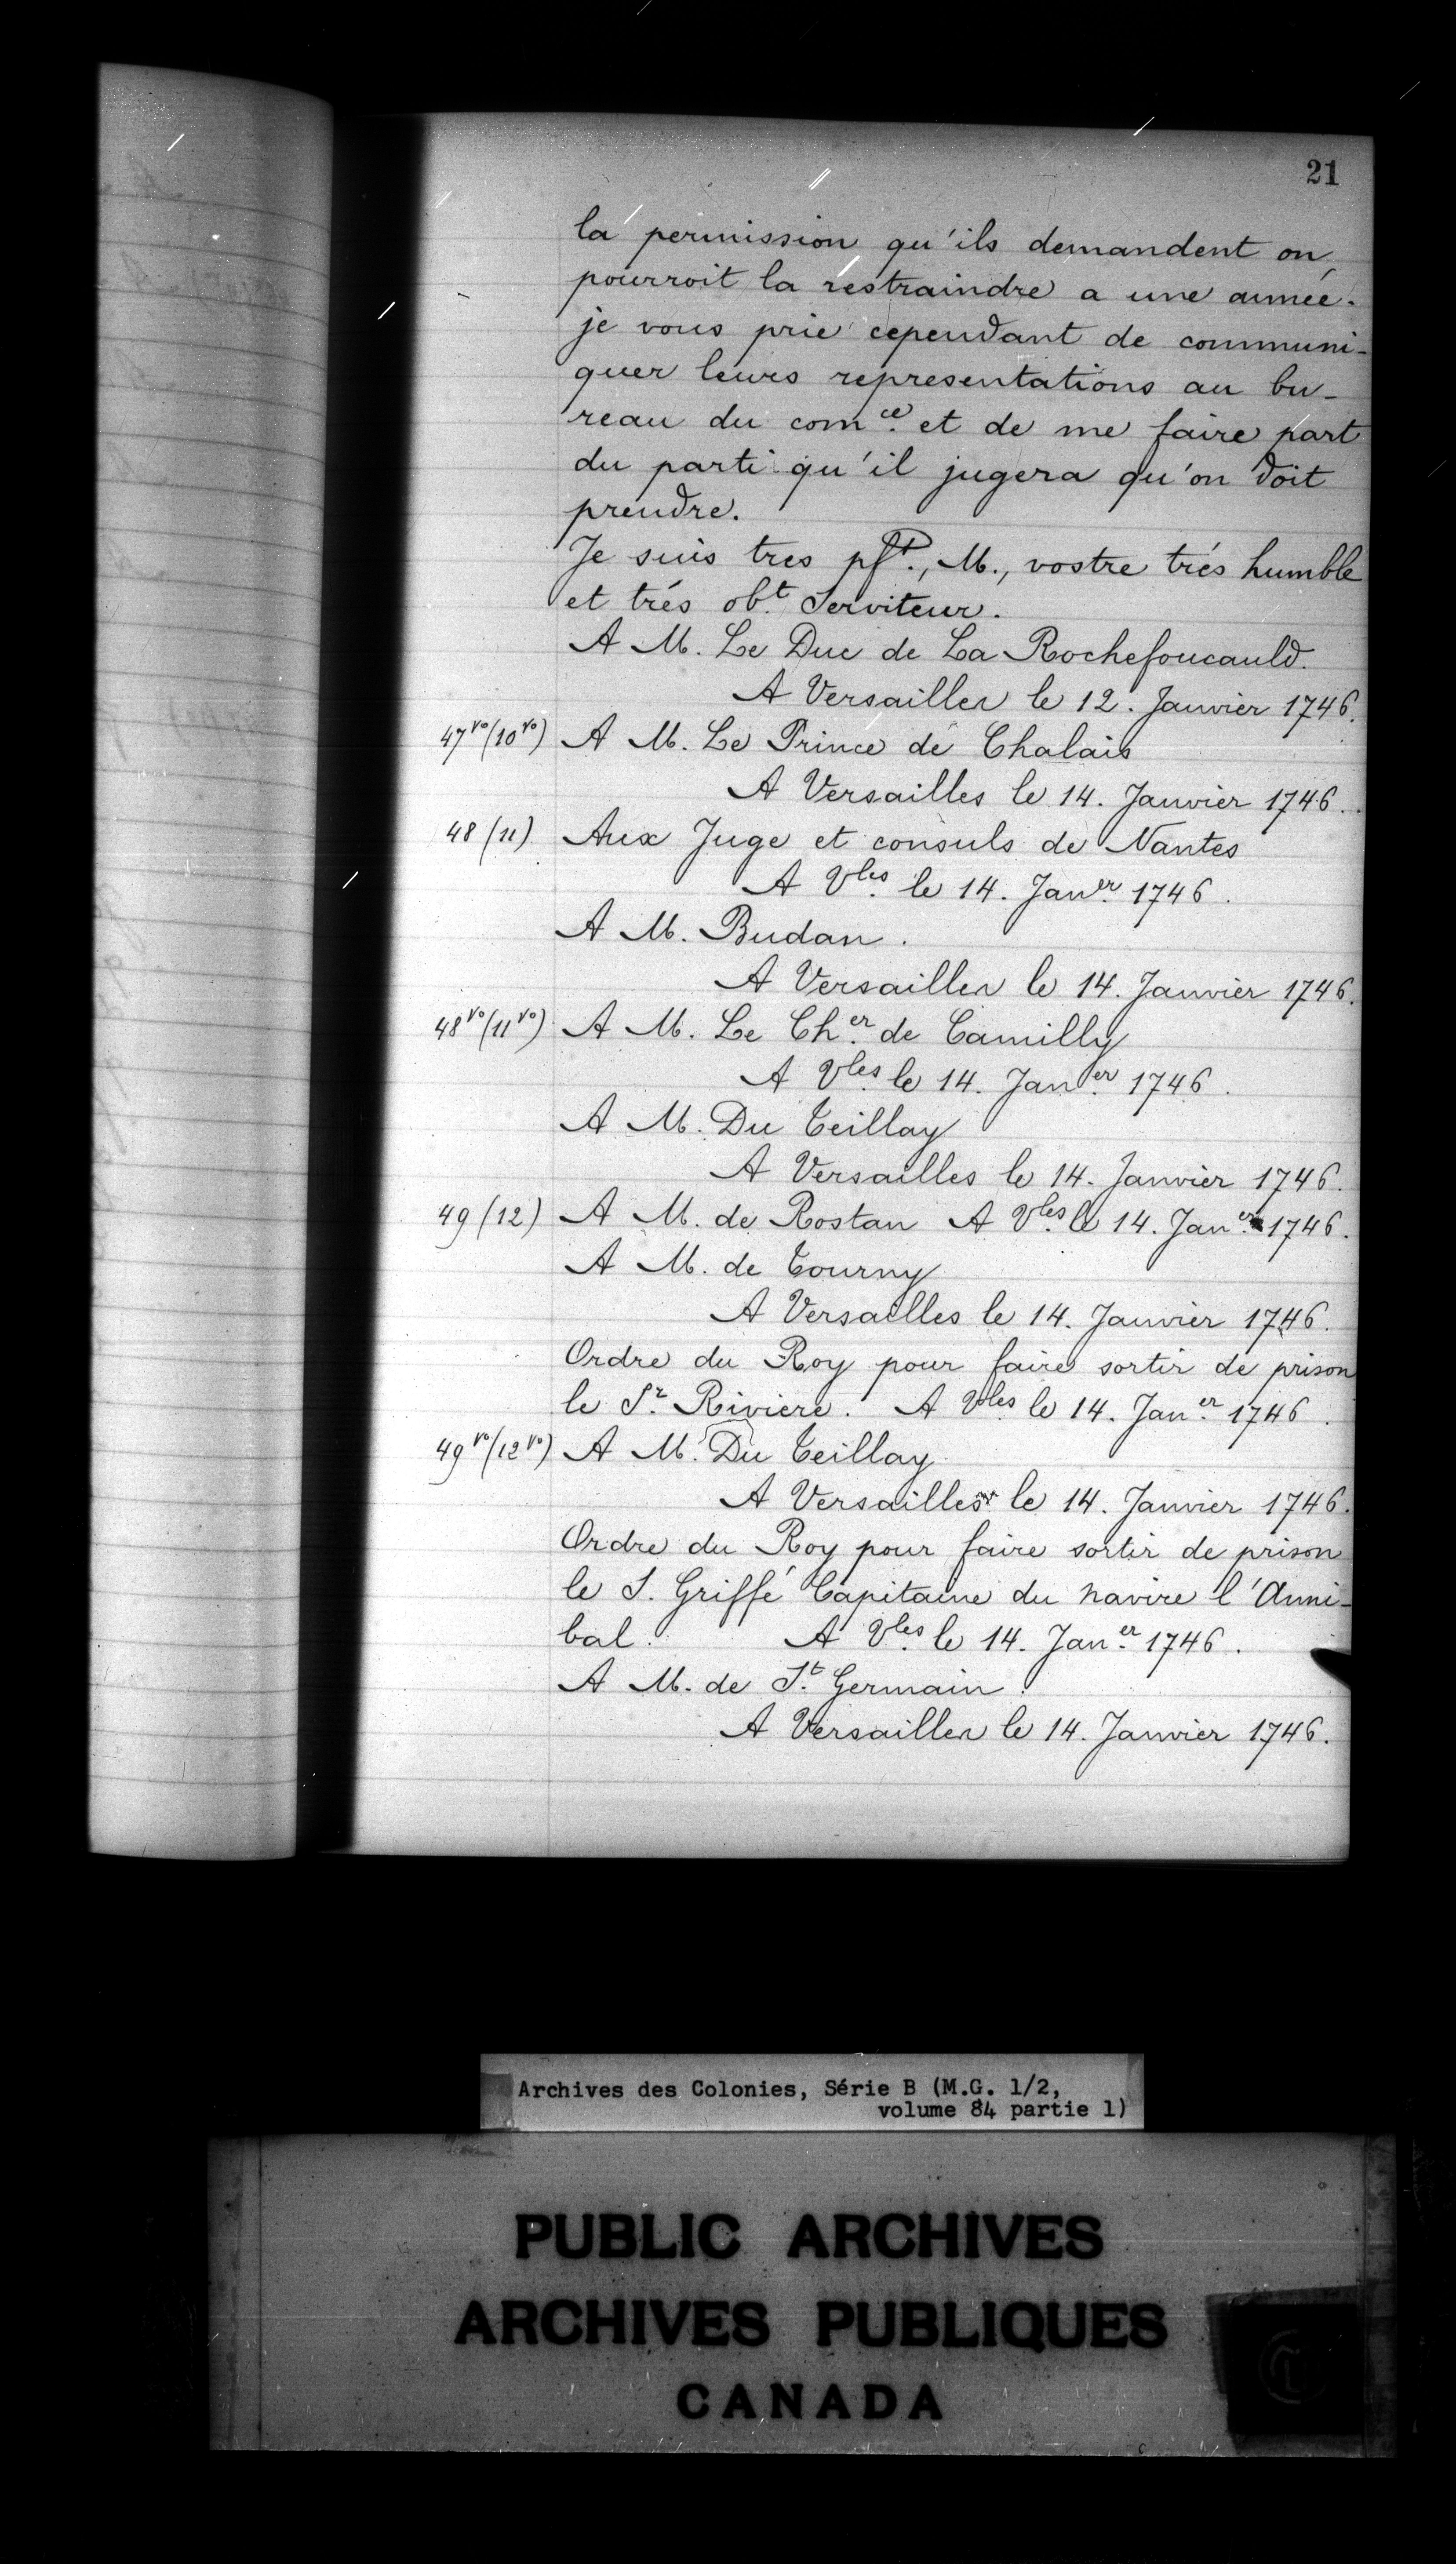 21
la permission qu'ils demandent on
pourroit la restraindre a une année.
je vous prie cependant de communi-
quer leurs representations au bu-
reau du com.ce et de me faire part
du parti qu'il jugera qu'on doit
prendre.
Je suis tres pft., M., vostre trés humble
et trés ob.t Serviteur.
A M. Le Duc de La Rochefoucauld.
A Versailles le 12. Janvier 1746.
47vo (10vo) A M. Le Prince de Chalais
A Versailles le 14. Janvier 1746.
48 (11) Aux Juge et consuls de Nantes
A V.les le 14. Jan.er 1746.
A M. Budan.
A Versailles le 14. Janvier 1746.
48vo (11vo) A M. Le Ch.er de Camilly
A V.les le 14. Jan.er 1746.
A M. Du Teillay
A Versailles le 14. Janvier 1746.
49 (12) A M. de Rostan A V.les le 14. Jan.er 1746.
A M. de Tourny
A Versailles le 14. Janvier 1746.
Ordre du Roy pour faire sortir de prison
le S.r Riviere. A V.les le 14. Jan.er 1746.
49vo (12vo) A M. Du Teillay
A Versailles le 14. Janvier 1746.
Ordre du Roy pour faire sortir de prison
le S. Griffé Capitaine du navire l'Anni-
bal. A V.les le 14. Jan.er 1746.
A M. de S.t Germain.
A Versailles le 14. Janvier 1746.
Archives des Colonies, Série B (M.G. 1/2,
volume 84 partie 1)
PUBLIC ARCHIVES
ARCHIVES PUBLIQUES
CANADA